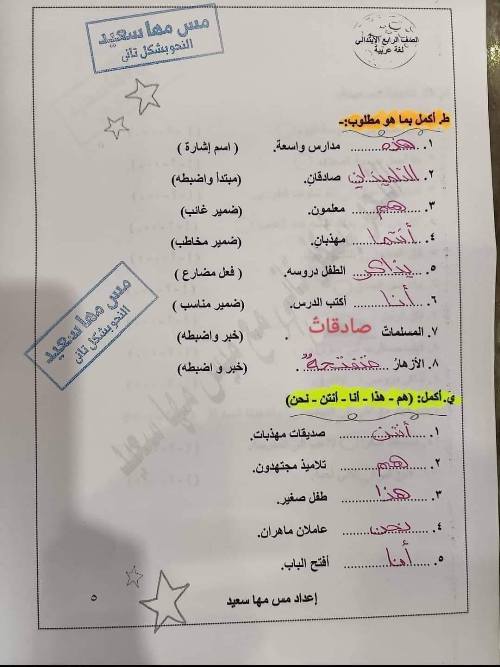 مس مها سعيد
النحو بشكل تانى
الصف الرابع الإبتدائي
لغة عربية
ط. أكمل بما هو مطلوب:-
١. هذه مدارس واسعة. ( اسم إشارة )
٢. التلميذان صادقانِ. (مبتدأ واضبطه)
٣. هم معلمون. (ضمير غائب)
٤. أنتما مهذبان. (ضمير مخاطب)
٥. يذاكر الطفل دروسه. ( فعل مضارع )
٦. أنا أكتب الدرس. (ضمير مناسب )
٧. المسلماتُ صادقاتٌ . (خبر واضبطه)
٨. الأزهارُ متفتحةٌ . (خبر و اضبطه)
مس مها سعيد
النحو بشكل تانى
ي. أكمل: (هم - هذا - أنا - أنتن - نحن)
١. أنتن صديقات مهذبات.
٢. هم تلاميذ مجتهدون.
٣. هذا طفل صغير.
٤. نحن عاملان ماهران.
٥. أنا أفتح الباب.
إعداد مس مها سعيد
٥